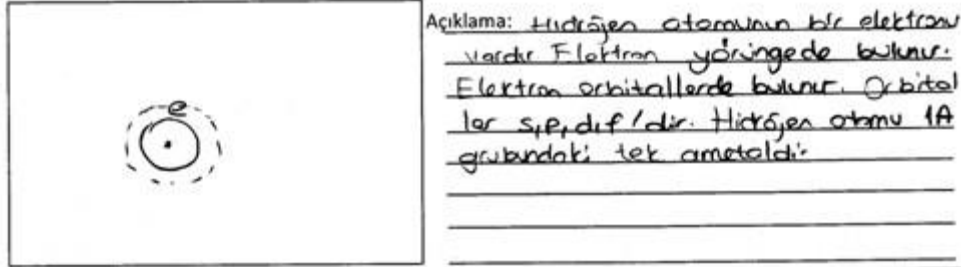 e
Açıklama: Hidrojen atomunun bir elektronu
vardır Elektron yörüngede bulunur.
Elektron orbitallerde bulunur. Orbital
ler s,p,d,f'dir. Hidrojen atomu 1A
grubundaki tek ametaldir.